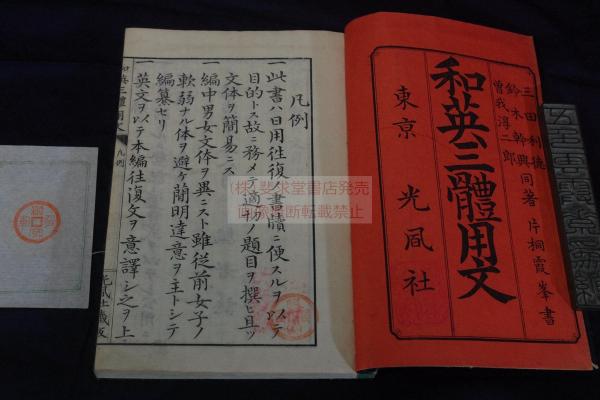 三田利徳
鈴木幹興同著
曽我淳二郎
片桐霞峯書
和英三體用文
東京 光風社
凡例
一此書ハ日用往復ノ書牘ニ便スルヲ以テ
目的トス故ニ務メテ適切ノ題目ヲ撰ヒ且ツ
文体ヲ簡易ニス
一編中男女文体ヲ異ニスト雖従前女子ノ
軟弱ナル体ヲ避ケ簡明達意ヲ主トシテ
編纂セリ
一英文ヲ以テ本編往復文ヲ意譯シ之ヲ上
和英三體用文
凡例
光風社蔵版
(株)悲求堂書店発売
画像無断転載禁止